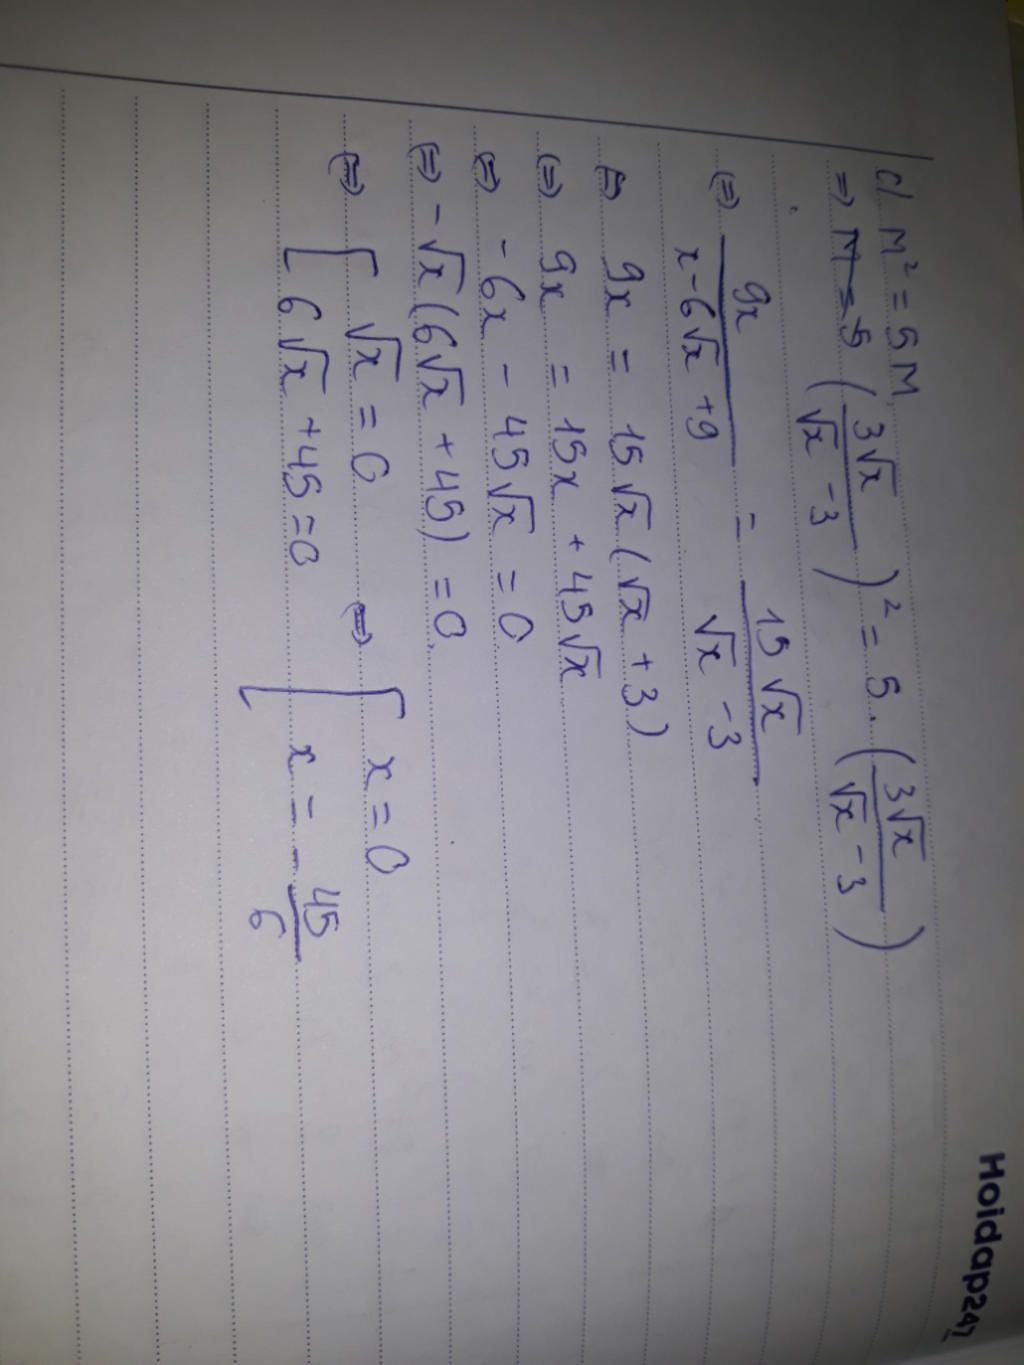 c/ M² = 5M
=> M = 5 (3√x / √x - 3)² = 5. (3√x / √x - 3)
<=> 9x / x - 6√x + 9 = 15√x / √x - 3
<=> 9x = 15√x (√x + 3)
<=> 9x = 15x + 45√x
<=> -6x - 45√x = 0
<=> -√x (6√x + 45) = 0
<=> [ √x = 0 <=> [ x = 0
6√x + 45 = 0 x = - 45/6
Hoidap247